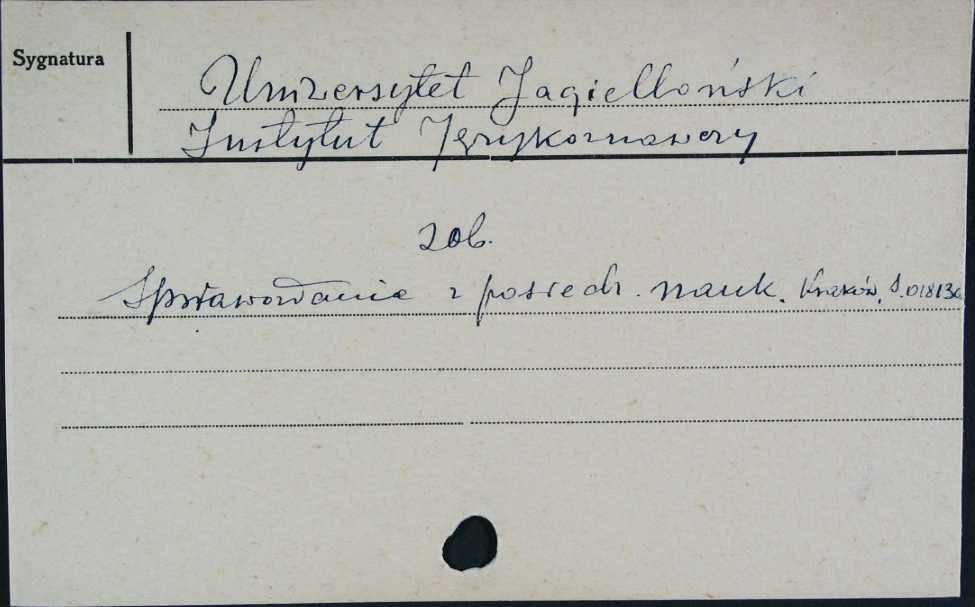 Sygnatura
Uniwersytet Jagielloński
Instytut Językoznawczy
zob.
Sprawozdania z posiedz. nauk. Kraków, S.01813c